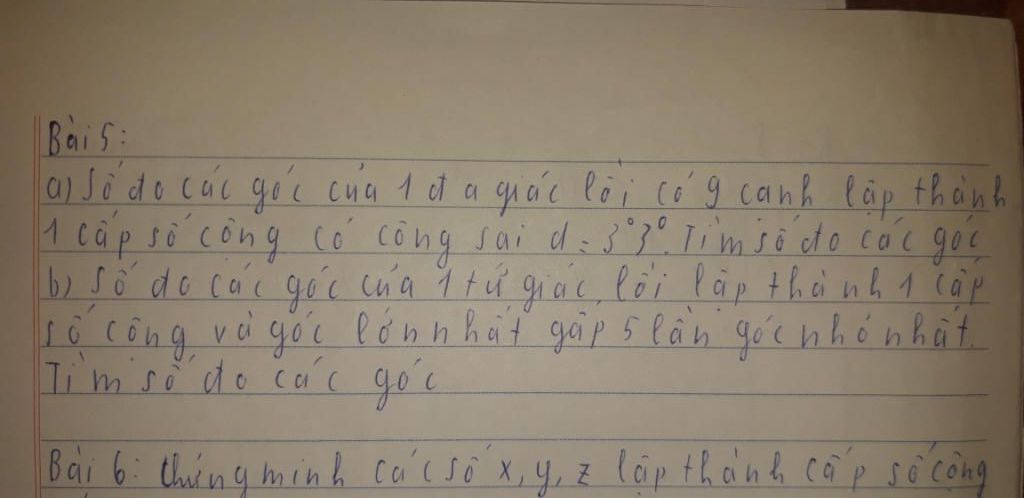 Bài 5:
a) Số đo các góc của 1 đa giác lồi có 9 cạnh lập thành
1 cấp số cộng có công sai d = 3°3°. Tìm số đo các góc
b) Số đo các góc của 1 tứ giác lồi lập thành 1 cấp
số cộng và góc lớn nhất gấp 5 lần góc nhỏ nhất.
Tìm số đo các góc
Bài 6: Chứng minh các số x, y, z lập thành cấp số cộng